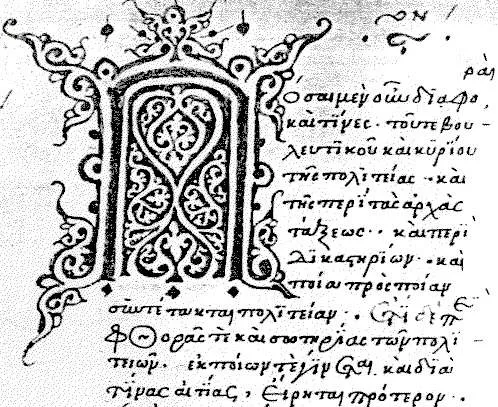 ραὶ
Πόσαι μὲν οὖν διαφο
καὶ τίνες · τοῦ τε βου-
λευτικοῦ καὶ κυρίου
τῆς πολιτείας · καὶ
τῆς περὶ τὰς ἀρχὰς
τάξεως · καὶ περὶ
δικαστηρίων · καὶ
ποία πρὸς ποίαν
συντέτακται πολιτείαν · ἔτι δὲ περὶ
φθορᾶς τε καὶ σωτηρίας τῶν πολι-
τειῶν · ἐκ ποίων τε γίνεται καὶ διὰ
τίνας αἰτίας, εἴρηται πρότερον ·